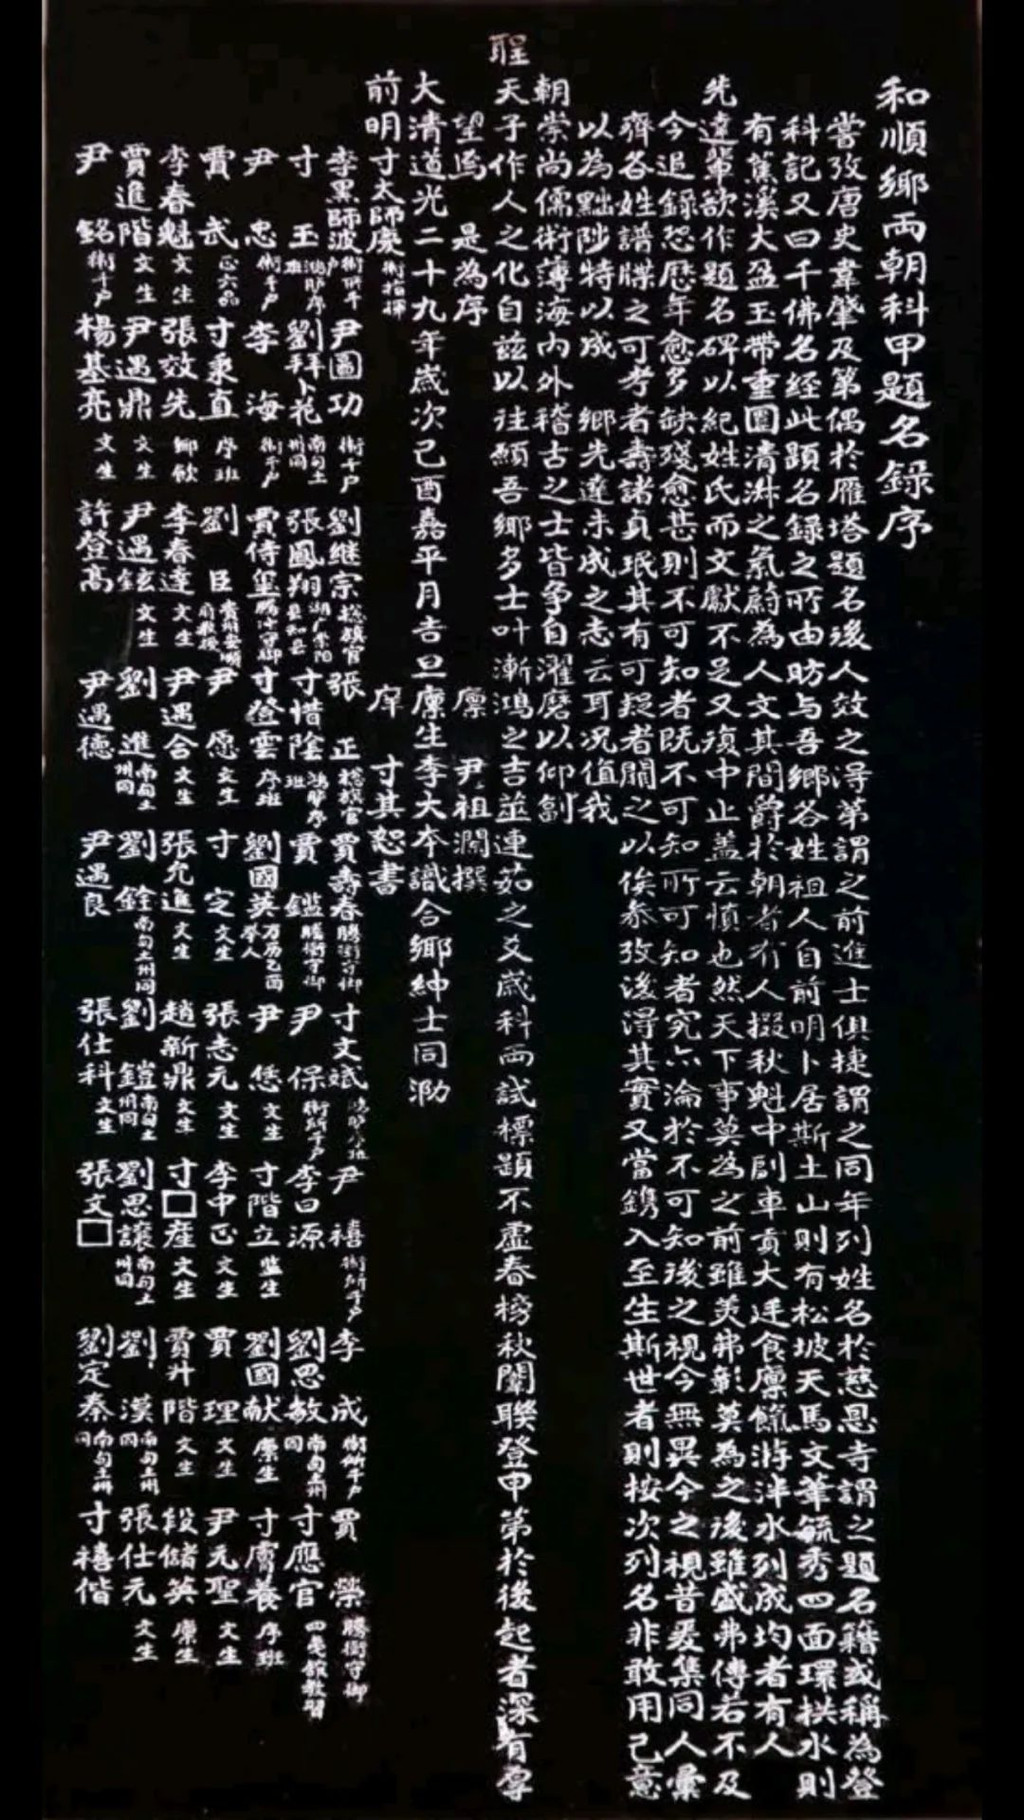 和順鄉兩朝科甲題名錄序
嘗攷唐史韋肇及第偶於雁塔題名後人效之得第謂之前進士俱捷謂之同年列姓名於慈恩寺謂之題名籍或稱為登
科記又曰千佛名經此題名錄之所由昉与吾鄉各姓祖人自前明卜居斯土山則有松坡天馬文筆毓秀四面環拱水則
有蕉溪大盈玉帶重圍清淑之氣蔚為人文其間爵於朝者有人掇秋魁中副車貢大廷食廩餼游泮水列成均者有人
先達輩欲作題名碑以紀姓氏而文獻不足又復中止盖云慎也然天下事莫為之前雖美弗彰莫為之後雖盛弗傳若不及
今追錄恐歷年愈多缺殘愈甚則不可知者既不可知所可知者究亦淪於不可知後之視今無異今之視昔爰集同人彙
齊各姓譜牒之可考者壽諸貞珉其有可疑者闕之以俟叅攷後得其實又當鐫入至生斯世者則按次列名非敢用己意
以為黜陟特以成 鄉先達未成之志云耳况值我
朝崇尚儒術薄海内外稽古之士皆争自濯磨以仰副
聖天子作人之化自兹以往願吾鄉多士叶漸鴻之吉並連茹之爻歲科兩試標題不虛春榜秋闈聯登甲第於後起者深有厚
望焉 是為序 廪 尹祖瀾撰
大清道光二十九年歲次己酉嘉平月吉旦廪生李大本識合鄉紳士同泐
庠 寸其恕書
前明寸太師慶衛指揮
李黑師波衛千户 尹圖功衛千户 劉继宗総旗官 張正総旗官 賈壽春騰衝守御 寸文斌鴻臚序班 尹禧衛所千户 李成衛所千户 賈榮騰衝守御
寸玉鴻臚序班 劉拜卜花南甸土州同 張鳳翔 寸惜陰鴻臚序班 賈鑑騰衝守御 尹保衛所千户 李曰源 劉思敏南甸土州同 寸應官四夷館教習
尹忠衛千户 李海衛千户 賈侍璽騰冲守御 寸登雲序班 劉國英万历乙酉举人 尹恁文生 寸階立监生 劉國献廪生 寸膚養序班
賈武正六品 寸秉直序班 劉臣 尹愿文生 寸定文生 張志元文生 李中正文生 賈理文生 尹元聖文生
李春魁文生 張效先鄉飲 李春達文生 尹遇合文生 張允進文生 趙新鼎文生 寸□産文生 賈升階文生 段儲英廪生
賈進階文生 尹遇鼎文生 尹遇鉉文生 劉進南甸土州同 劉銓南甸土州同 劉鎧南甸土州同 劉思讓南甸土州同 劉漢南甸土州同 張仕元文生
尹銘衛千户 楊基亮文生 許登高 尹遇德 尹遇良 張仕科文生 張文□ 劉定泰南甸土州同 寸禧偕